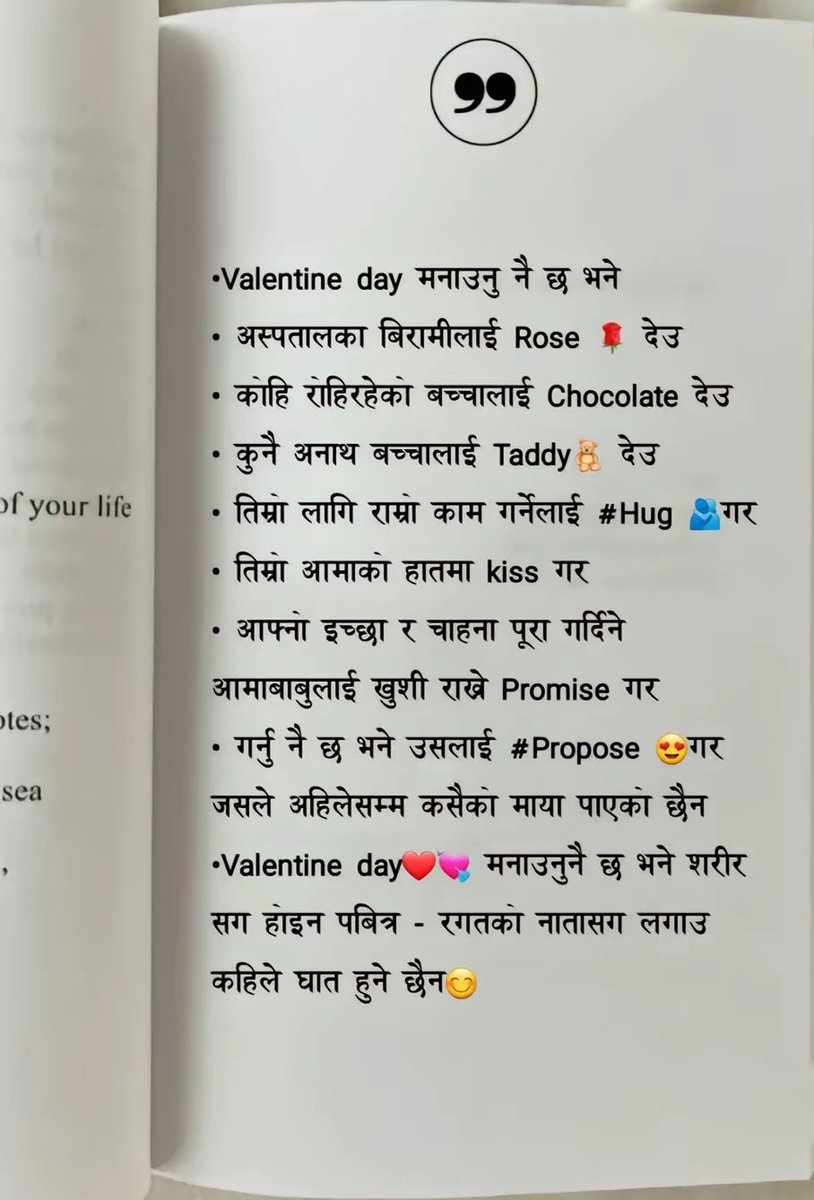 of your life
otes;
sea
,
”
•Valentine day मनाउनु नै छ भने
• अस्पतालका बिरामीलाई Rose 🌹 देउ
• कोहि रोहिरहेको बच्चालाई Chocolate देउ
• कुनै अनाथ बच्चालाई Taddy🧸 देउ
• तिम्रो लागि राम्रो काम गर्नेलाई #Hug 🫂गर
• तिम्रो आमाको हातमा kiss गर
• आफ्नो इच्छा र चाहना पूरा गर्दिने
आमाबाबुलाई खुशी राख्ने Promise गर
• गर्नु नै छ भने उसलाई #Propose 😍गर
जसले अहिलेसम्म कसैको माया पाएको छैन
•Valentine day❤️💘 मनाउनुनै छ भने शरीर
सग होइन पबित्र - रगतको नातासग लगाउ
कहिले घात हुने छैन😊